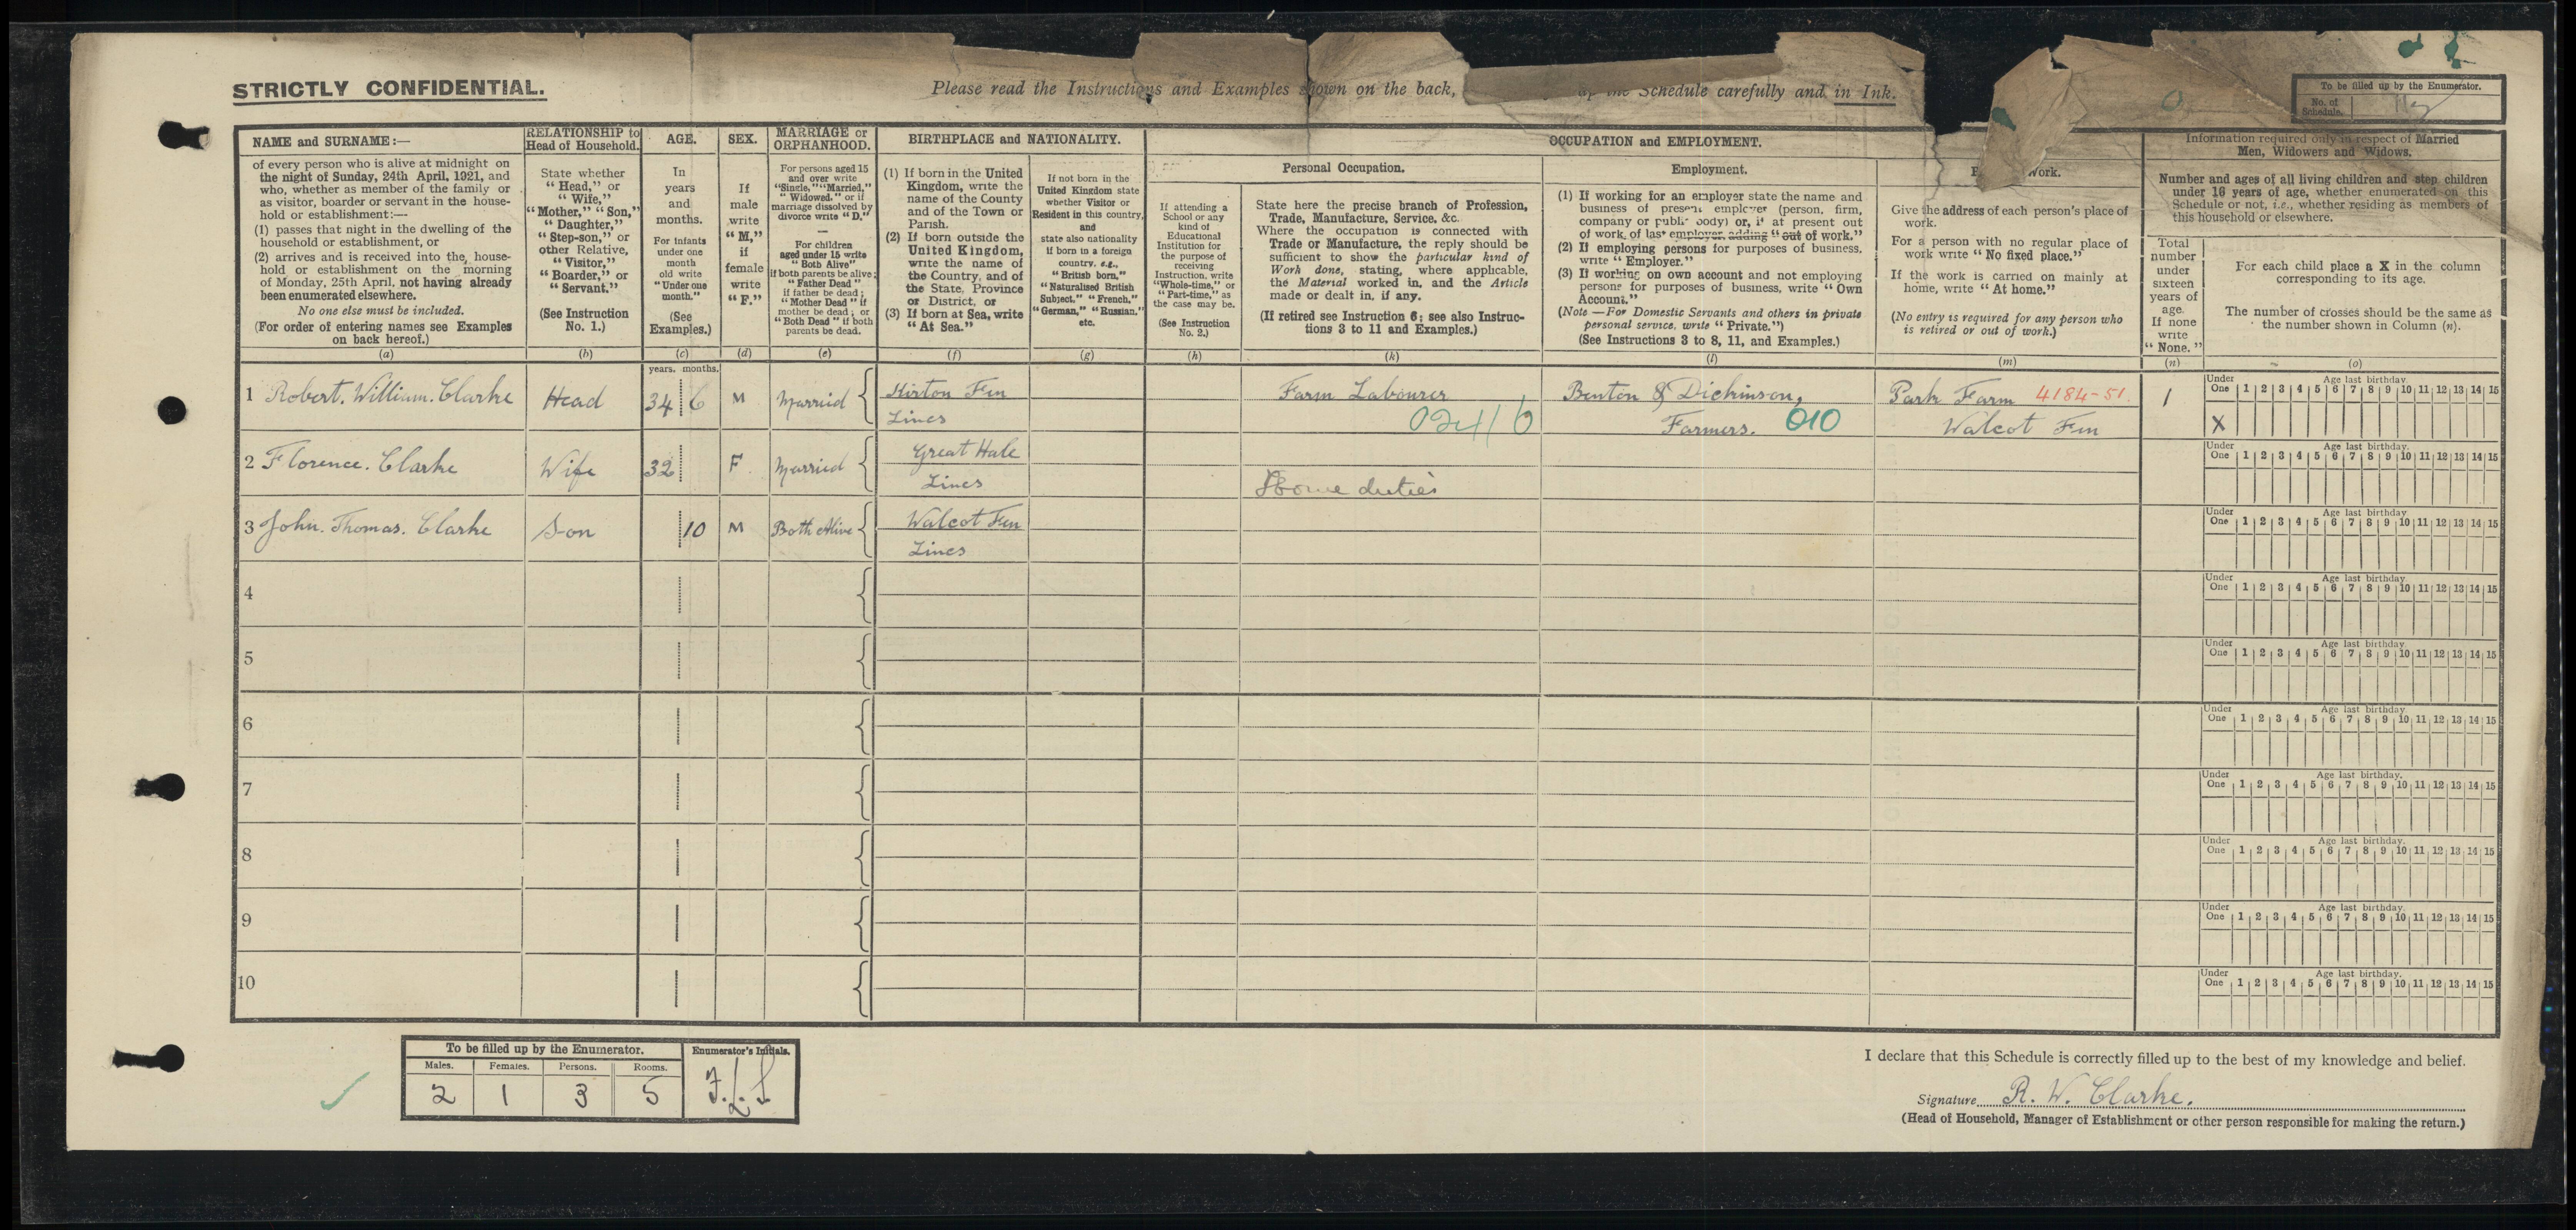 STRICTLY CONFIDENTIAL.
Please read the Instructions and Examples shown on the back, up the Schedule carefully and in Ink.
To be filled up by the Enumerator.
No. of Schedule.
NAME and SURNAME:—
of every person who is alive at midnight on
the night of Sunday, 24th April, 1921, and
who, whether as member of the family or
as visitor, boarder or servant in the house-
hold or establishment:—
(1) passes that night in the dwelling of the
household or establishment, or
(2) arrives and is received into the house-
hold or establishment on the morning
of Monday, 25th April, not having already
been enumerated elsewhere.
No one else must be included.
(For order of entering names see Examples
on back hereof.)
(a)
RELATIONSHIP to
Head of Household.
State whether
"Head," or
"Wife,"
"Mother," "Son,"
"Daughter,"
"Step-son," or
other Relative,
"Visitor,"
"Boarder," or
"Servant."
(See Instruction
No. 1.)
(b)
AGE.
In
years
and
months.
For infants
under one
month
old write
"Under one
month."
(See
Examples.)
(c)
SEX.
If
male
write
"M,"
if
female
write
"F."
(d)
MARRIAGE or
ORPHANHOOD.
For persons aged 15
and over write
"Single," "Married,"
"Widowed," or if
marriage dissolved by
divorce write "D."
For children
aged under 15 write
"Both Alive"
if both parents be alive;
"Father Dead"
if father be dead;
"Mother Dead" if
mother be dead; or
"Both Dead" if both
parents be dead.
(e)
BIRTHPLACE and NATIONALITY.
(1) If born in the United
Kingdom, write the
name of the County
and of the Town or
Parish.
(2) If born outside the
United Kingdom,
write the name of
the Country, and of
the State, Province
or District, or
(3) If born at Sea, write
"At Sea."
(f)
If not born in the
United Kingdom state
whether Visitor or
Resident in this country,
and
state also nationality
if born in a foreign
country, e.g.,
"British born,"
"Naturalised British
Subject," "French,"
"German," "Russian,"
etc.
(g)
OCCUPATION and EMPLOYMENT.
If attending a
School or any
kind of
Educational
Institution for
the purpose of
receiving
Instruction, write
"Whole-time," or
"Part-time," as
the case may be.
(See Instruction
No. 2.)
(h)
Personal Occupation.
State here the precise branch of Profession,
Trade, Manufacture, Service, &c.
Where the occupation is connected with
Trade or Manufacture, the reply should be
sufficient to show the particular kind of
Work done, stating, where applicable,
the Material worked in, and the Article
made or dealt in, if any.
(If retired see Instruction 6; see also Instruc-
tions 3 to 11 and Examples.)
(k)
Employment.
(1) If working for an employer state the name and
business of present employer (person, firm,
company or public body) or, if at present out
of work, of last employer, adding "out of work."
(2) If employing persons for purposes of business,
write "Employer."
(3) If working on own account and not employing
persons for purposes of business, write "Own
Account."
(Note—For Domestic Servants and others in private
personal service, write "Private.")
(See Instructions 3 to 8, 11, and Examples.)
(l)
Work.
Give the address of each person's place of
work.
For a person with no regular place of
work write "No fixed place."
If the work is carried on mainly at
home, write "At home."
(No entry is required for any person who
is retired or out of work.)
(m)
Information required only in respect of Married
Men, Widowers and Widows.
Number and ages of all living children and step children
under 16 years of age, whether enumerated on this
Schedule or not, i.e., whether residing as members of
this household or elsewhere.
Total
number
under
sixteen
years of
age.
If none
write
"None."
(n)
For each child place a X in the column
corresponding to its age.
The number of crosses should be the same as
the number shown in Column (n).
(o)
years. months.
1 Robert. William. Clarke Head 34 6 M Married Kirton Fen Lincs Farm Labourer 024/6 Benton & Dickinson, Farmers. 010 Park Farm 4184-51. Walcot Fen 1
Under One Age last birthday. 1 2 3 4 5 6 7 8 9 10 11 12 13 14 15
X
2 Florence. Clarke Wife 32 F. Married Great Hale Lincs Home duties
Under One Age last birthday. 1 2 3 4 5 6 7 8 9 10 11 12 13 14 15
3 John. Thomas. Clarke Son 10 M Both Alive Walcot Fen Lincs
Under One Age last birthday. 1 2 3 4 5 6 7 8 9 10 11 12 13 14 15
4
Under One Age last birthday. 1 2 3 4 5 6 7 8 9 10 11 12 13 14 15
5
Under One Age last birthday. 1 2 3 4 5 6 7 8 9 10 11 12 13 14 15
6
Under One Age last birthday. 1 2 3 4 5 6 7 8 9 10 11 12 13 14 15
7
Under One Age last birthday. 1 2 3 4 5 6 7 8 9 10 11 12 13 14 15
8
Under One Age last birthday. 1 2 3 4 5 6 7 8 9 10 11 12 13 14 15
9
Under One Age last birthday. 1 2 3 4 5 6 7 8 9 10 11 12 13 14 15
10
Under One Age last birthday. 1 2 3 4 5 6 7 8 9 10 11 12 13 14 15
To be filled up by the Enumerator. Enumerator's Initials.
Males. Females. Persons. Rooms.
2 1 3 5
I declare that this Schedule is correctly filled up to the best of my knowledge and belief.
Signature R. W. Clarke.
(Head of Household, Manager of Establishment or other person responsible for making the return.)